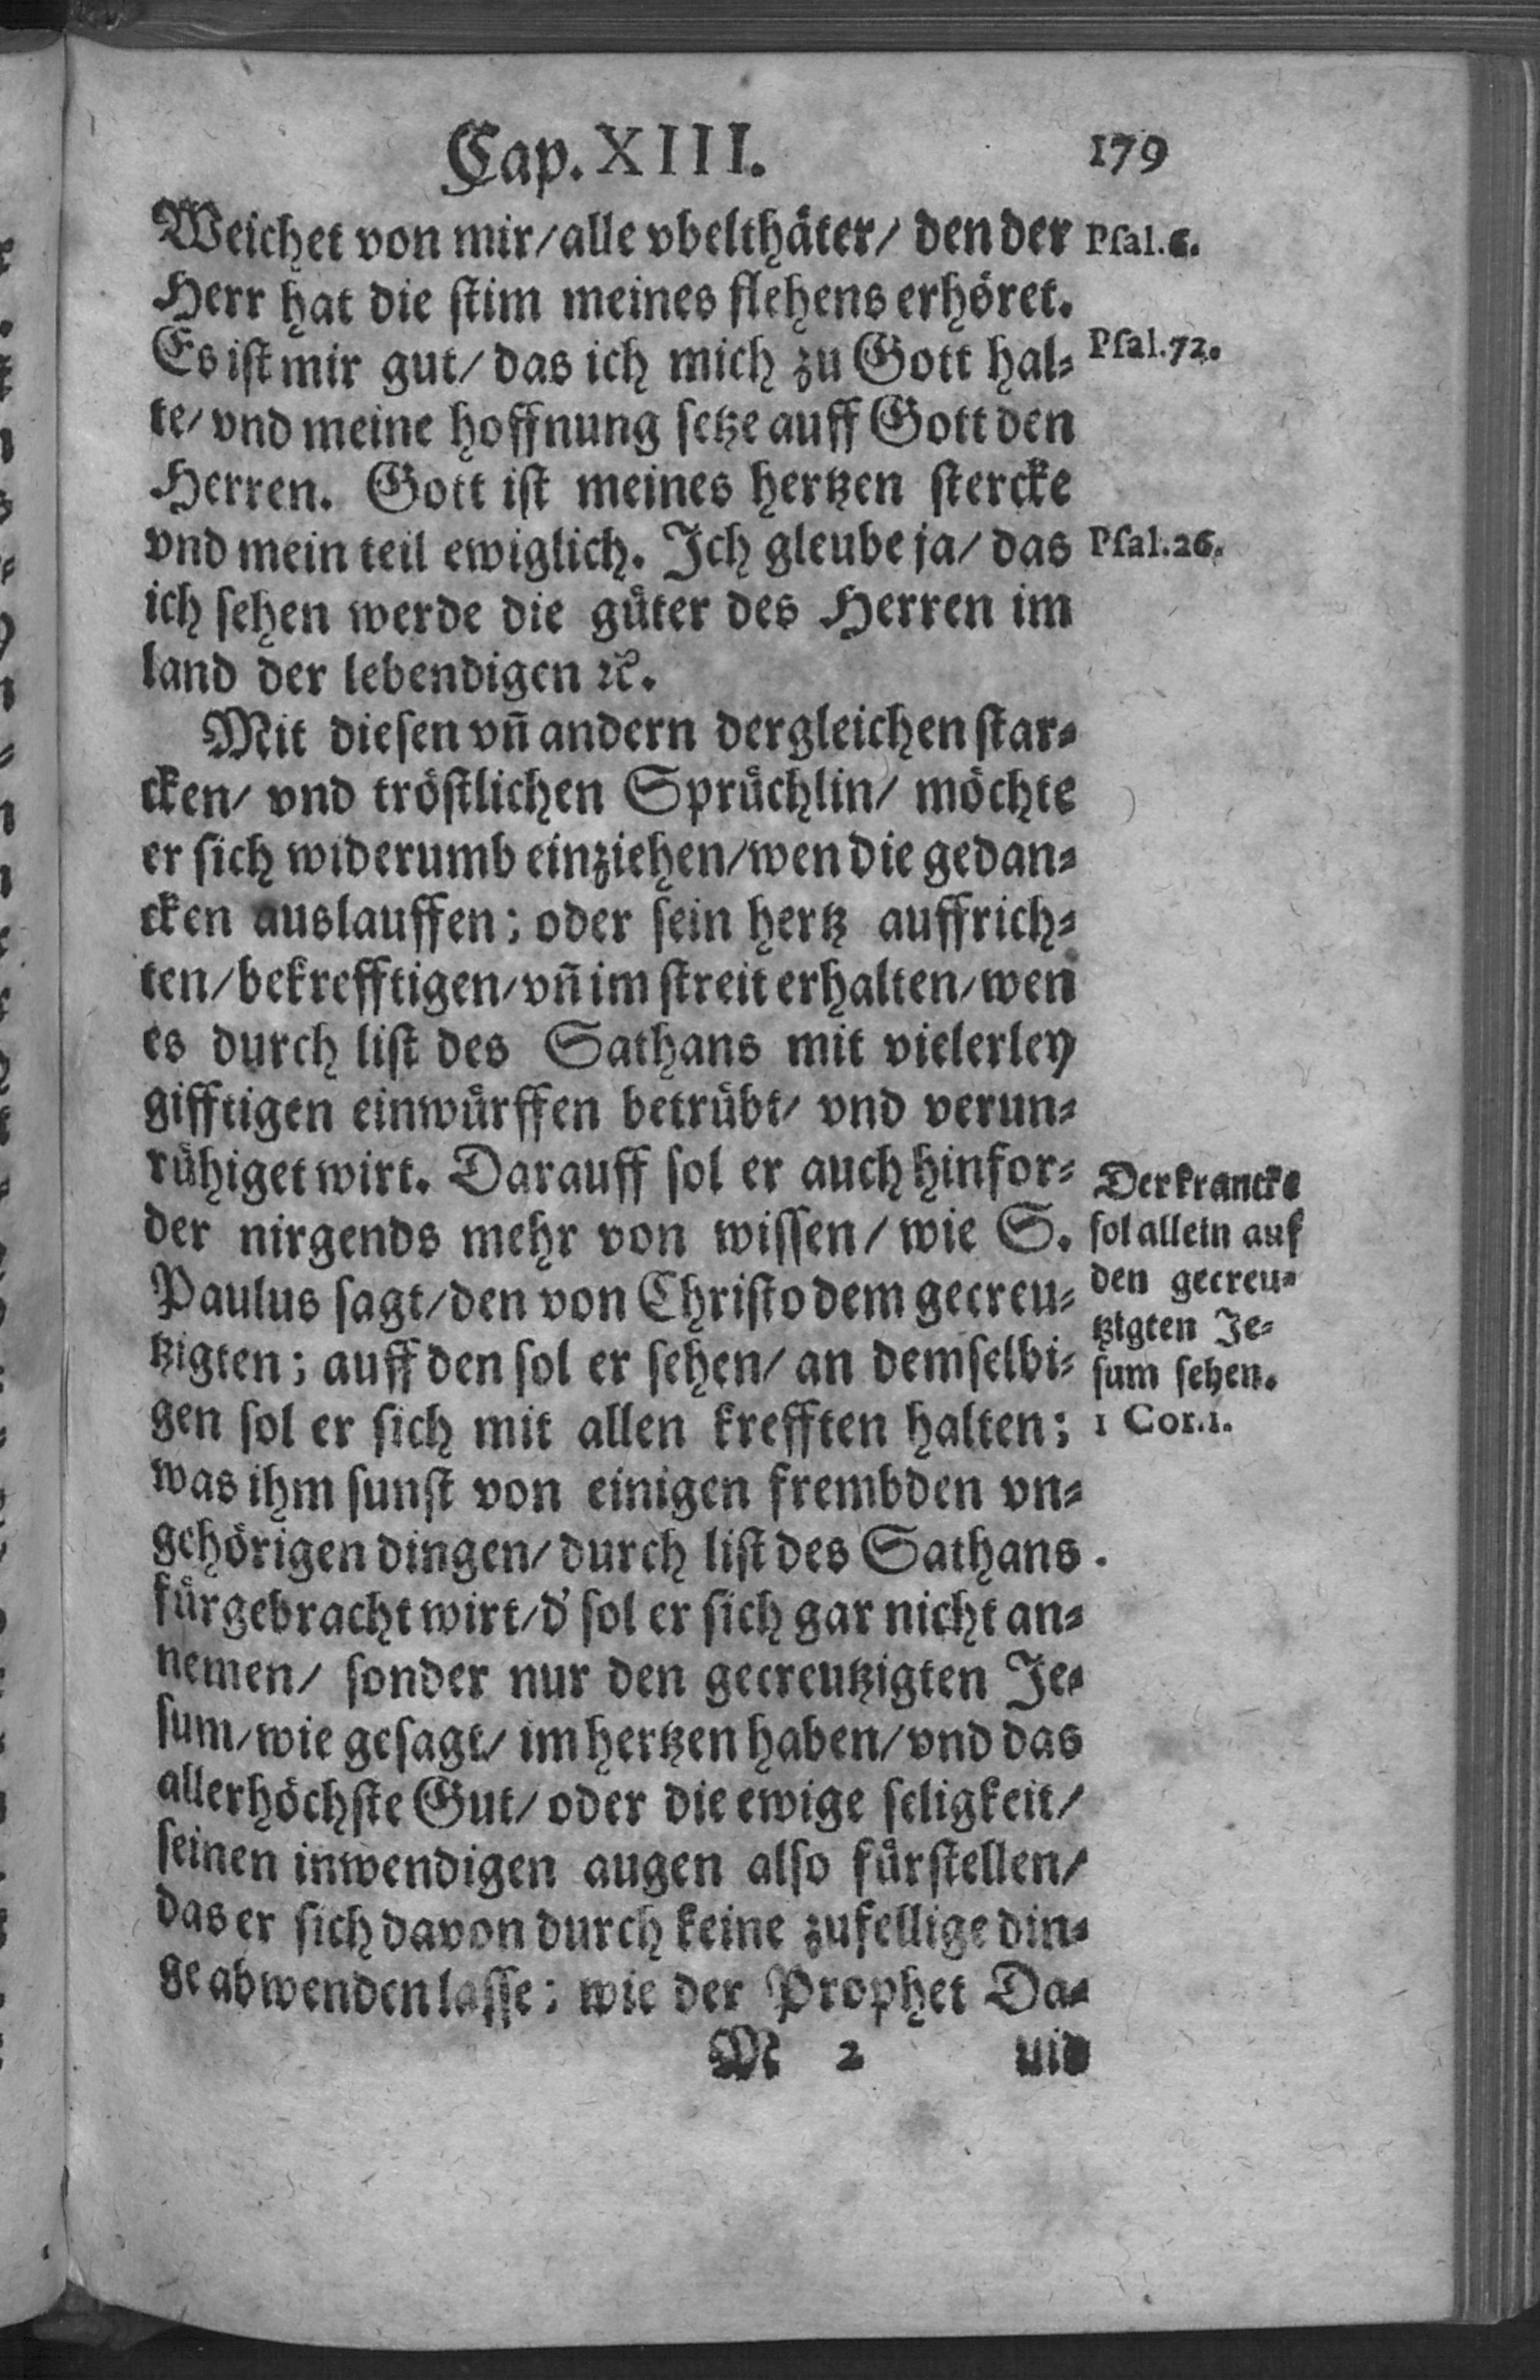 Cap. XIII. 179
Weichet von mir/ alle vbelthäter/ den der Psal.6.
Herr hat die stim meines flehens erhöret.
Es ist mir gut/ das ich mich zu Gott hal- Psal.72.
te/ vnd meine hoffnung setze auff Gott den
Herren. Gott ist meines hertzen stercke
vnd mein teil ewiglich. Ich gleube ja/ das Psal.26.
ich sehen werde die güter des Herren im
land der lebendigen ꝛc.
Mit diesen vñ andern dergleichen star-
cken/ vnd tröstlichen Sprüchlin/ möchte
er sich widerumb einziehen/ wen die gedan-
cken auslauffen; oder sein hertz auffrich-
ten/ bekrefftigen/ vñ im streit erhalten/ wen
es durch list des Sathans mit vielerley
gifftigen einwürffen betrübt/ vnd verun-
rühiget wirt. Darauff sol er auch hinfor-
der nirgends mehr von wissen/ wie S.
Paulus sagt/ den von Christo dem gecreu-
tzigten; auff den sol er sehen/ an demselbi-
gen sol er sich mit allen krefften halten;
was ihm sunst von einigen frembden vn-
gehörigen dingen/ durch list des Sathans
fürgebracht wirt/ d' sol er sich gar nicht an-
nemen/ sonder nur den gecreutzigten Je-
sum/ wie gesagt/ im hertzen haben/ vnd das
allerhöchste Gut/ oder die ewige seligkeit/
seinen inwendigen augen also fürstellen/
das er sich davon durch keine zufellige din-
ge abwenden lasse: wie der Prophet Da-
M 2 uid
Der krancke
sol allein auf
den gecreu-
tzigten Je-
sum sehen.
1 Cor.1.